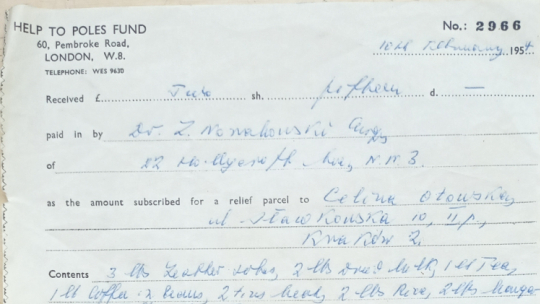 HELP TO POLES FUND
No.: 2966
60, Pembroke Road,
LONDON, W.8.
TELEPHONE: WES 9630
10th February 1954
Received £ Two sh. fifteen d. —
paid in by Dr. Z. Nowakowski
of 22 N.W.3.
as the amount subscribed for a relief parcel to Celina Otowska,
ul Sławkowska 10, II p.,
Kraków 2.
Contents 3 lbs Leather soles, 2 lbs dried milk, 1 lb Tea,
1 lb Coffee 2 tins 2 lbs Rice, 2 lbs